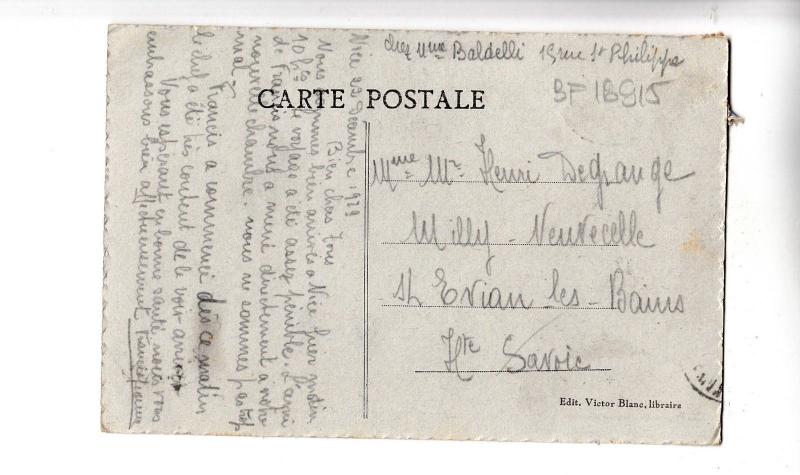 chez Mme Baldelli 19 rue St Philippe
BF 1BG15
CARTE POSTALE
Nice 29 Décembre 1929
Bien chers Tous
Nous sommes bien arrivés a Nice hier matin
10 h. Le voyage a été assez pénible. L'ami
de Francis nous a mené directement a notre
nouvelle chambre. nous ne sommes pas trop
mal.
Francis a commencé dès ce matin
le chef a été très content de le voir arriver
Vous espérant en bonne santé nous vous
embrassons bien affectueusement
Mme Mr Henri Degrange
Milly - Neuvecelle
St Evian les - Bains
Hte Savoie
Edit. Victor Blanc, libraire